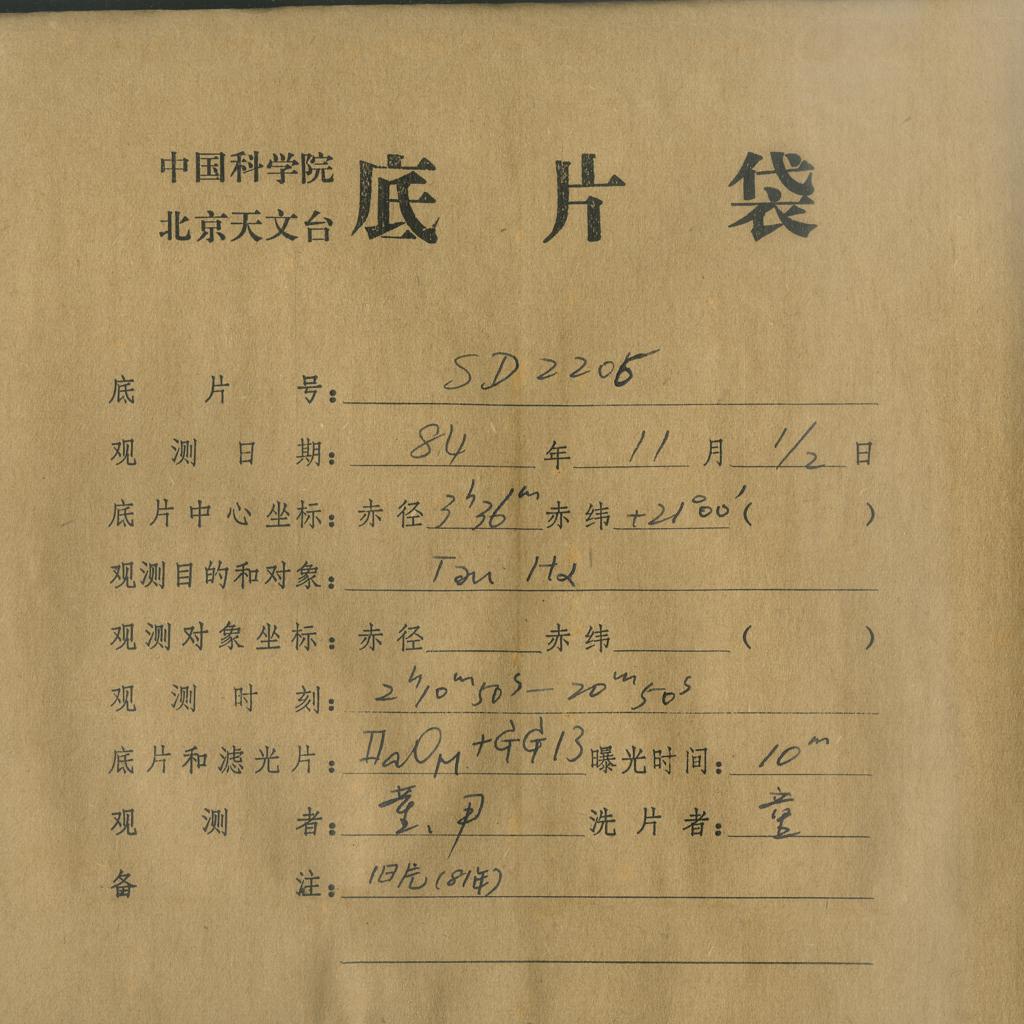 中国科学院
北京天文台
底片袋
底片号：SD2205
观测日期：84年11月1/2日
底片中心坐标：赤径3h36m赤纬+21°00′(      )
观测目的和对象：Tau Hα
观测对象坐标：赤径      赤纬      (      )
观测时刻：2h10m50s—20m50s
底片和滤光片：IIaOM+GG13曝光时间：10m
观测者：董、尹 洗片者：童
备注：旧片(81年)